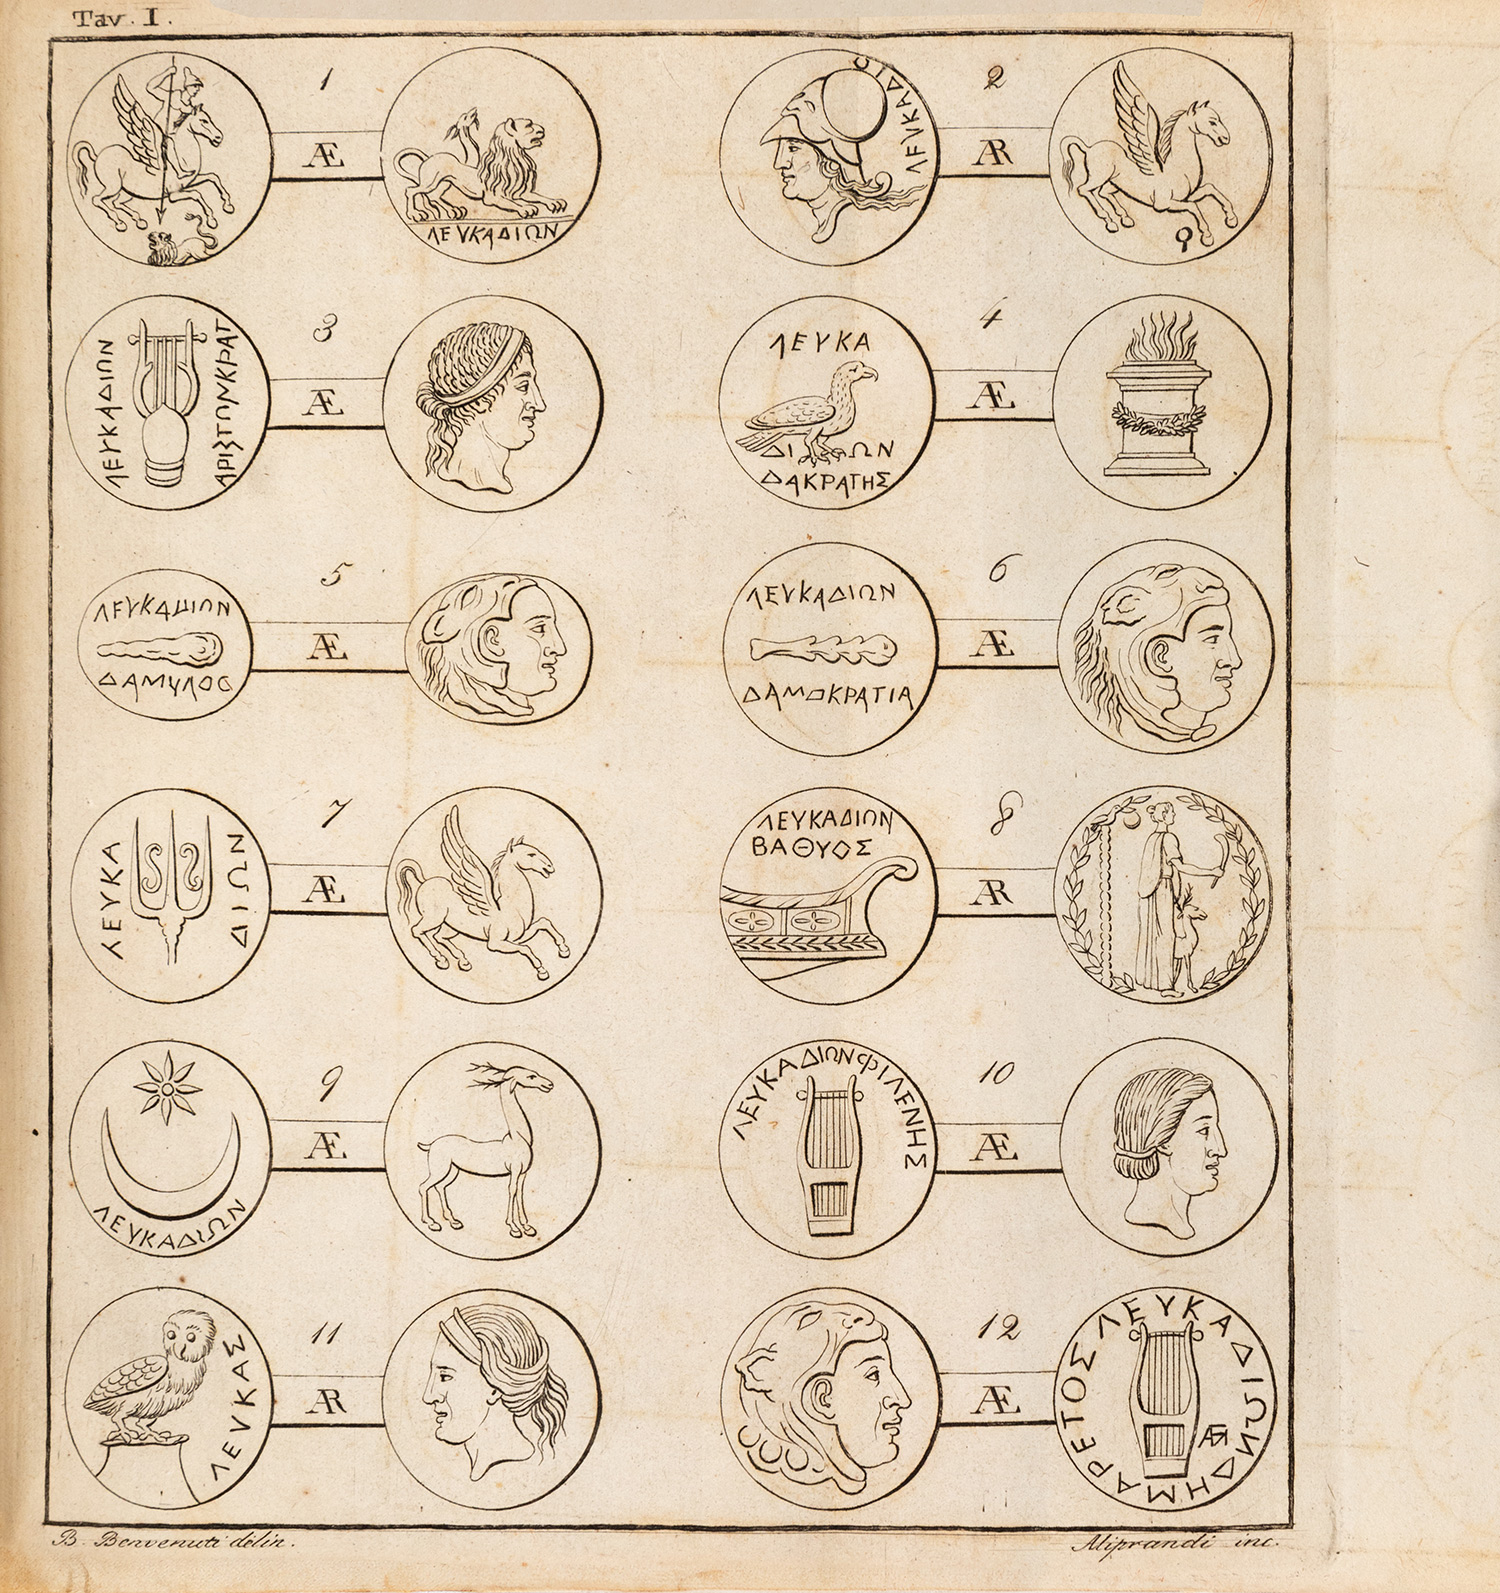 Tav. I.
1
Æ
ΛΕΥΚΑΔΙΩΝ
2
ΛΕΥΚΑΔΙΩ
AR
Ϙ
3
ΛΕΥΚΑΔΙΩΝ
Æ
4
ΛΕΥΚΑ
ΔΙΩΝ
ΔΑΚΡΑΤΗΣ
Æ
5
Æ
ΔΑΜΥΛΟC
6
ΛΕΥΚΑΔΙΩΝ
Æ
ΔΑΜΟΚΡΑΤΙΑ
7
ΛΕΥΚΑ
ΔΙΩΝ
Æ
8
ΛΕΥΚΑΔΙΩΝ
ΒΑΘΥΟΣ
AR
9
Æ
ΛΕΥΚΑΔΙΩΝ
10
ΛΕΥΚΑΔΙΩΝ ΦΙΛΕΝΗΣ
Æ
11
ΛΕΥΚΑΣ
AR
12
Æ
ΛΕΥΚΑΔΙΩΝ ΔΗΜΑΡΕΤΟΣ
B. Benvenuti delin.
Aliprandi inc.